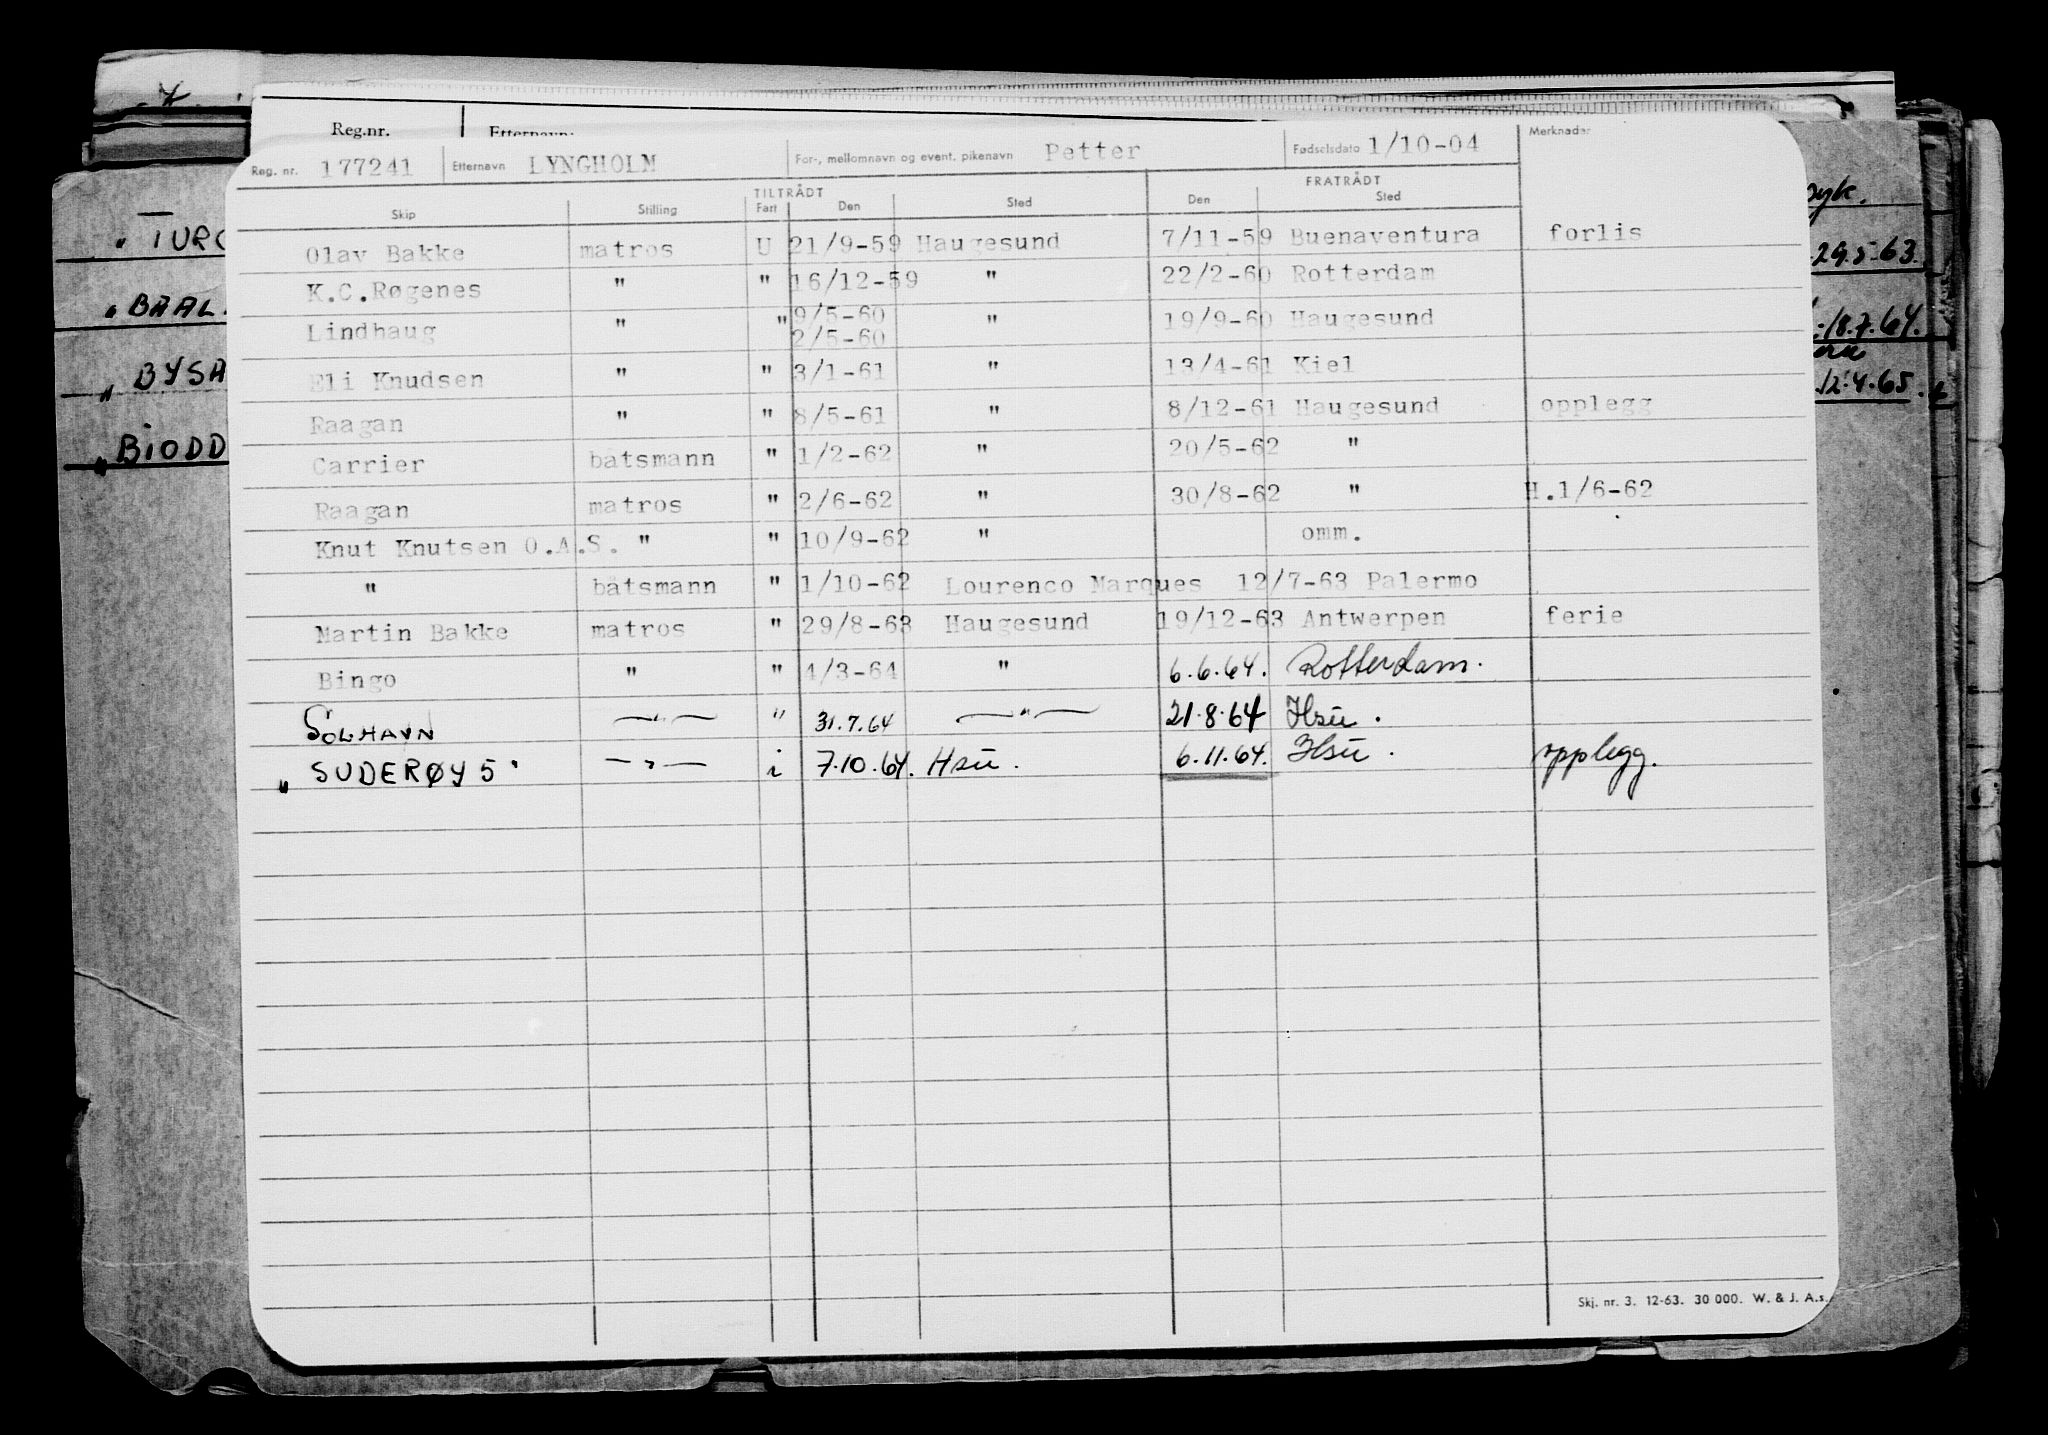 Reg.nr. Etternavn:
Reg. nr. 177241 Etternavn LYNGHOLM For-, mellomnavn og event. pikenavn Petter Fødselsdato 1/10-04 Merknader
TILTRÅDT FRATRÅDT
Skip Stilling Fart Den Sted Den Sted
Olav Bakke matros U 21/9-59 Haugesund 7/11-59 Buenaventura forlis
K.C.Røgenes " " 16/12-59 " 22/2-60 Rotterdam
9/5-60
Lindhaug " " 2/5-60 " 19/9-60 Haugesund
Eli Knudsen " " 3/1-61 " 13/4-61 Kiel
Raagan " " 8/5-61 " 8/12-61 Haugesund opplegg
Carrier båtsmann " 1/2-62 " 20/5-62 "
Raagan matros " 2/6-62 " 30/8-62 " H.1/6-62
Knut Knutsen O.A.S. " " 10/9-62 " omm.
" båtsmann " 1/10-62 Lourenco Marques 12/7-63 Palermo
Martin Bakke matros " 29/8-63 Haugesund 19/12-63 Antwerpen ferie
Bingo " " 4/3-64 " 6.6.64. Rotterdam.
SOLHAVN —"— " 31.7.64 —"— 21.8.64 Hsu.
"SUDERØY 5" —"— i 7.10.64. Hsu. 6.11.64. Hsu. opplegg.
Skj. nr. 3. 12-63. 30 000. W. & J. A.s.
"TURC
"BAAL
"BYSA
"BIODD
29.5.63.
18.7.64.
12.4.65.